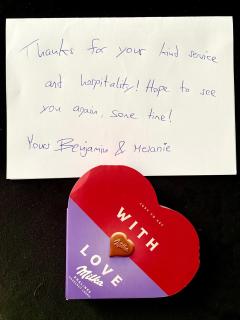 Thanks for your kind service
and hospitality! Hope to see
you again, some time!
Yours Benjamin & Melanie
WITH
LOVE
Milka